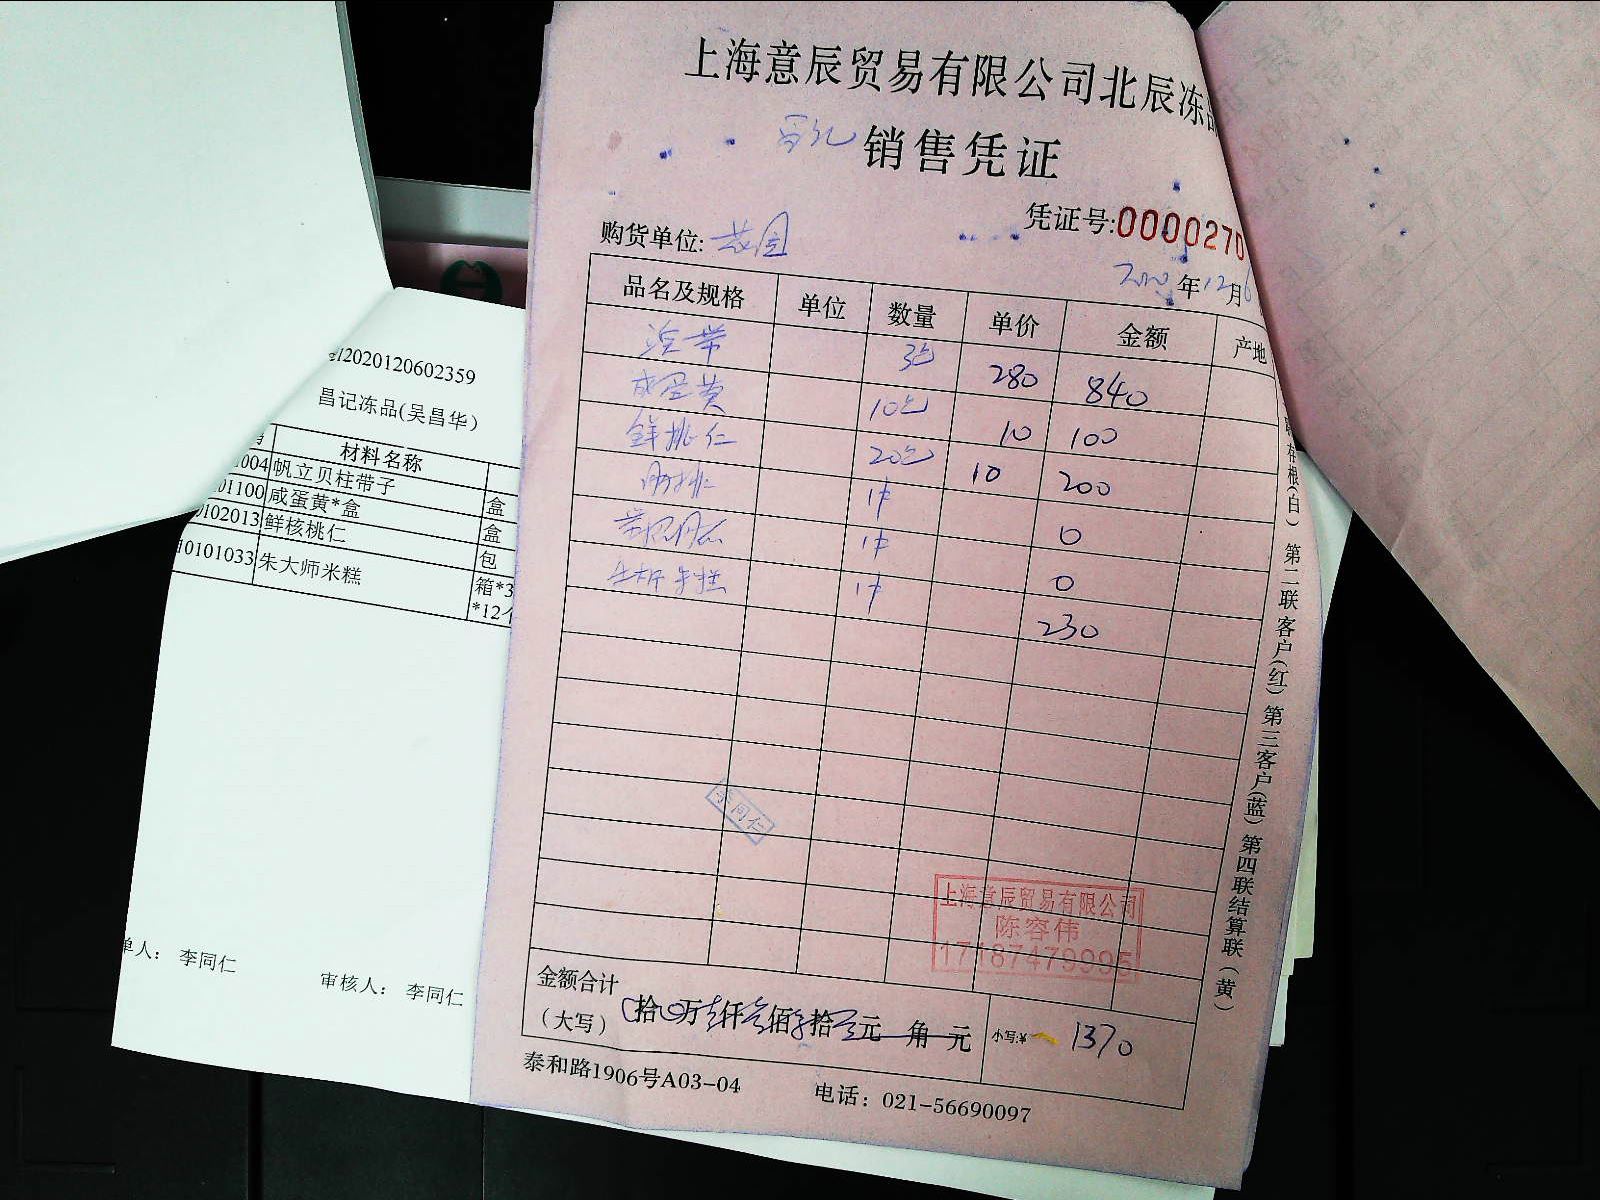 上海意辰贸易有限公司北辰冻品
昌记 销售凭证
凭证号:0000270
购货单位:
2020年12月6
品名及规格 单位 数量 单价 金额 产地
3包 280 840
咸蛋黄 10包 10 100
鲜桃仁 20包 10 200
1件 0
1件 0
1件 230
李同仁
上海意辰贸易有限公司
陈容伟
17187479995
金额合计
(大写) 拾 万 仟 佰 拾 元 角 元 小写:¥ 1370
泰和路1906号A03-04 电话：021-56690097
第二联客户(红) 第三客户(蓝) 第四联结算联(黄)
2020120602359
昌记冻品(吴昌华)
材料名称
004 帆立贝柱带子 盒
01100 咸蛋黄*盒 盒
0102013 鲜核桃仁 包
10101033 朱大师米糕 箱*3
*12个
单人: 李同仁 审核人: 李同仁